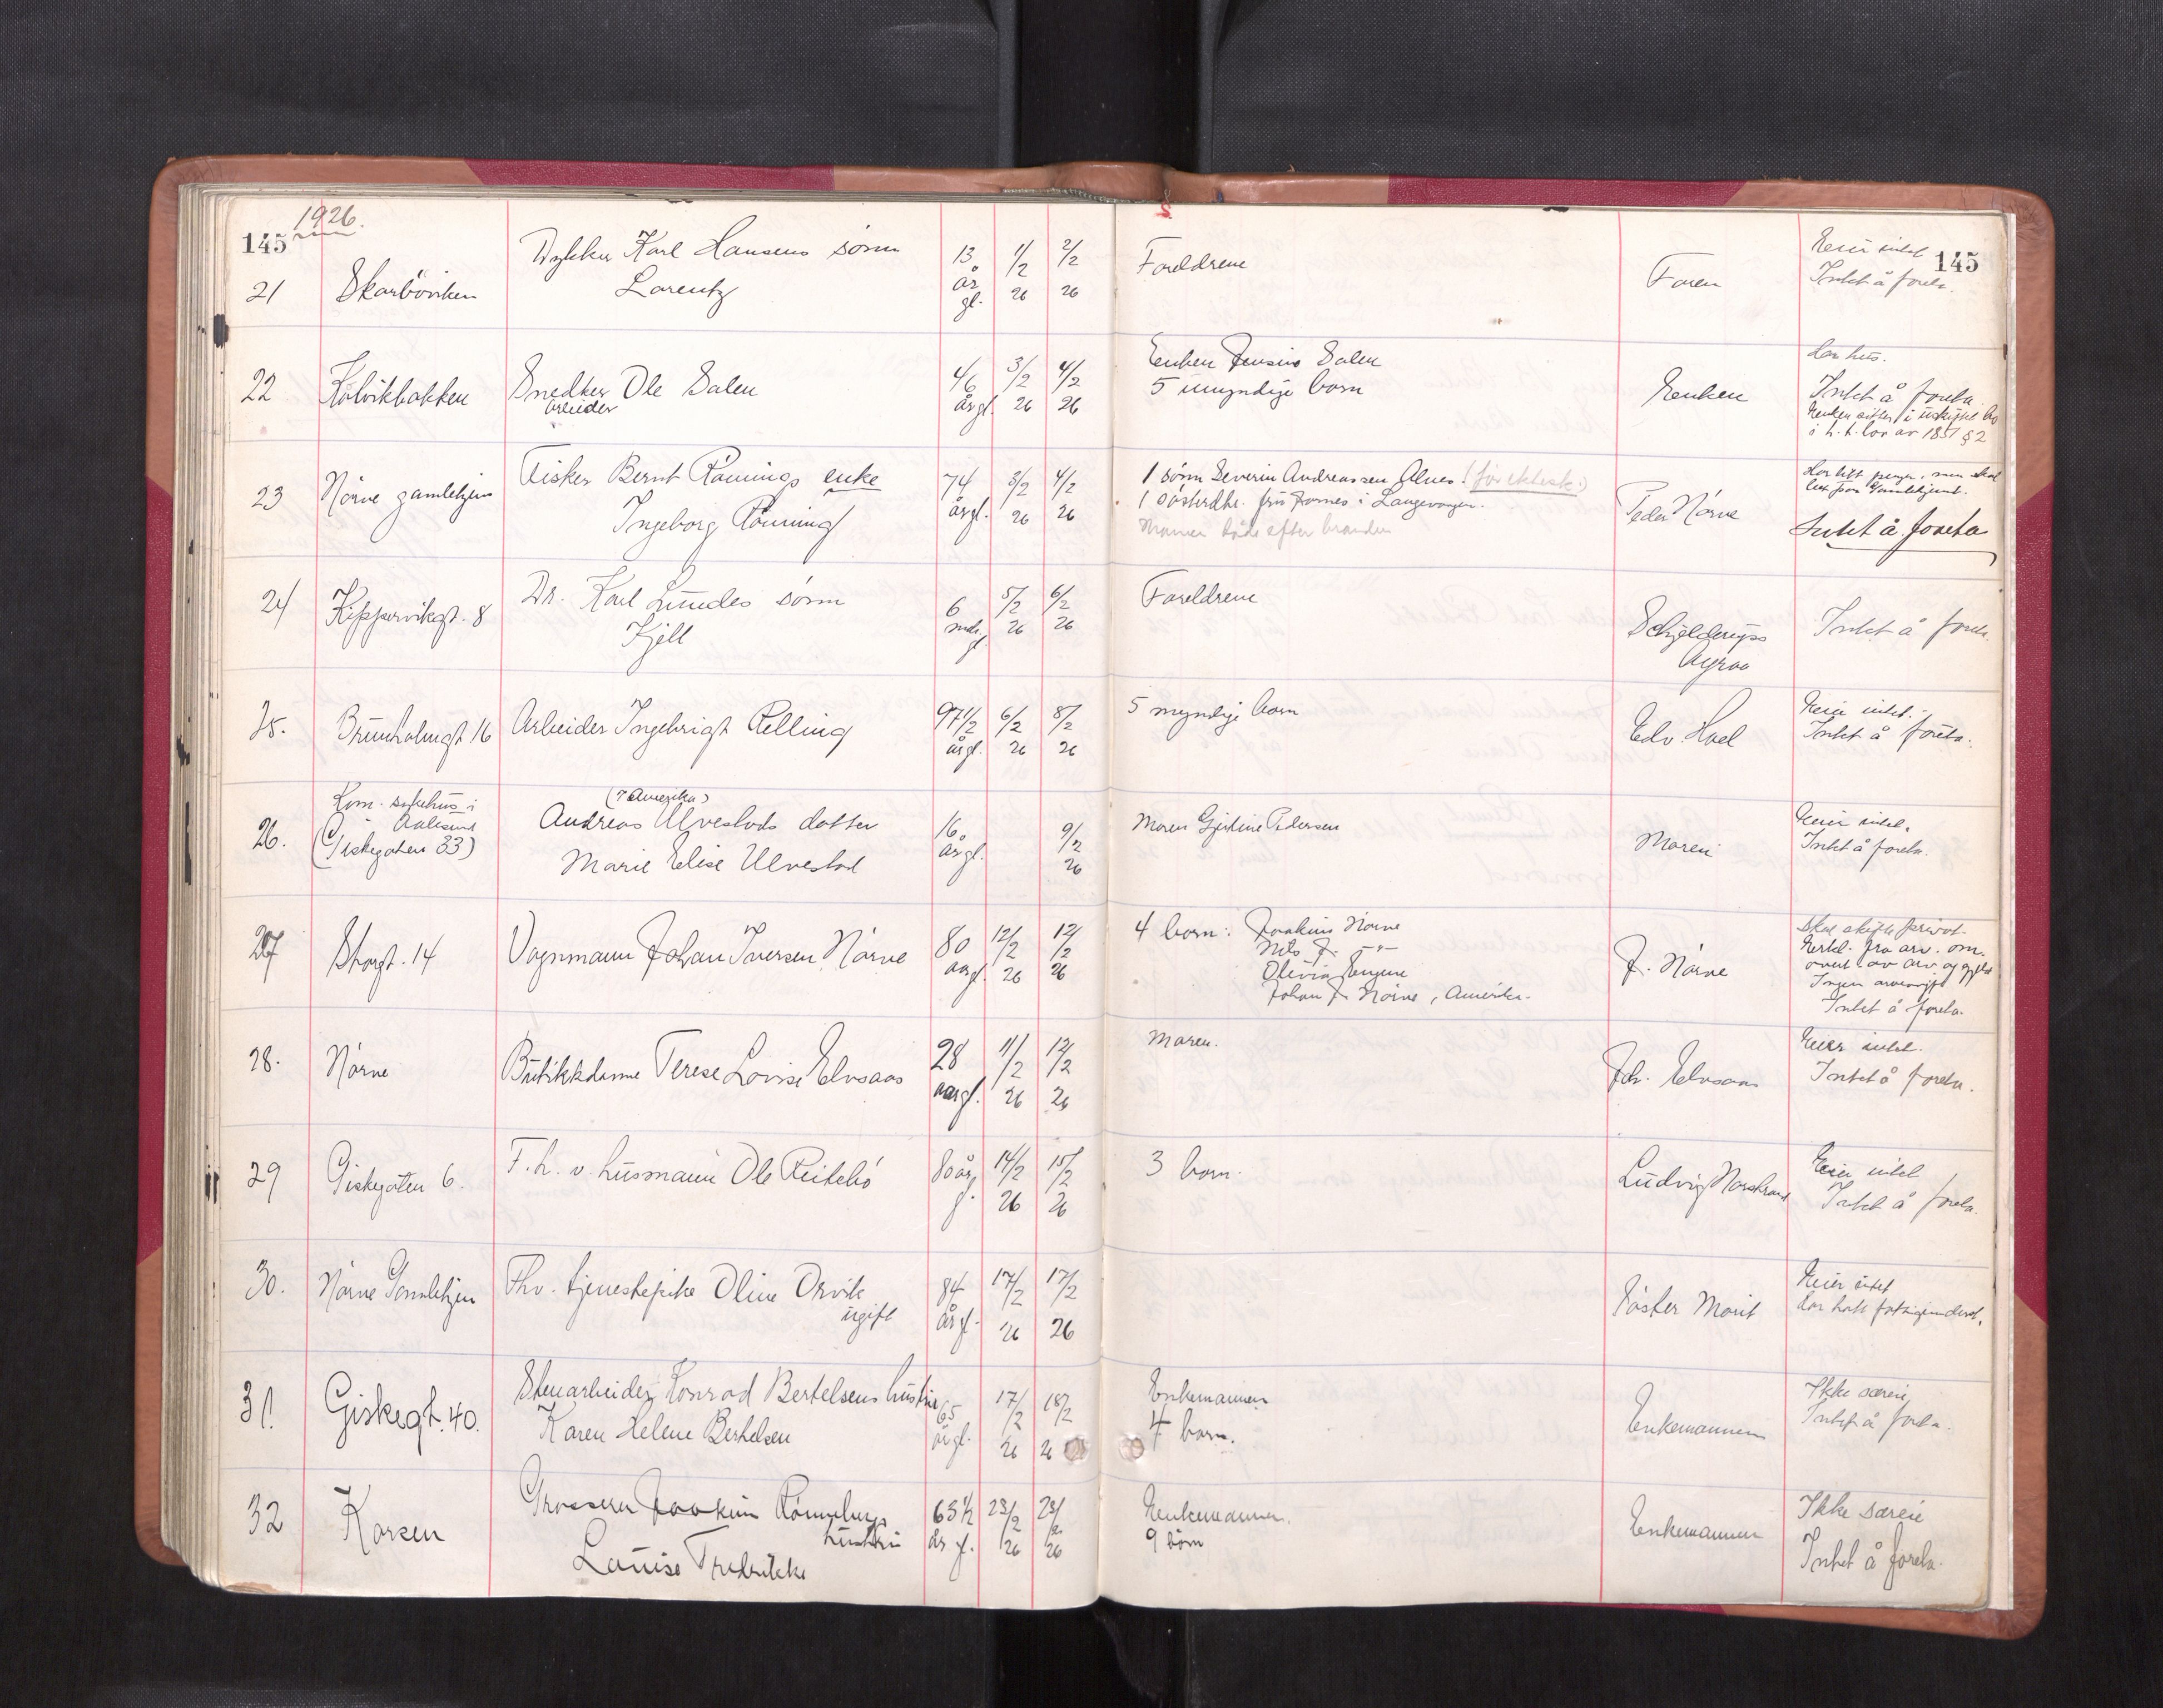 1926.
145
145
21 Skarböviken
Dykker Karl Hansens sönn
Lorentz
13 år gl. 1/2 26 2/2 26
Foreldrene
Faren
Eeier intet
Intet å foreta.
22 Kolvikbakken
Snedker Ole Salen
arbeider
46 år gl. 3/2 26 4/2 26
Enken Jensine Salen
5 umyndige born
Enken
Har hus.
Intet å foreta.
Enken sitter i uskiftet bo
i h. t. lov av 1851 § 2
23 Nörve gamlehjem
Fisker Bernt Rönnings enke
Ingeborg Rönning
74 år gl. 3/2 26 4/2 26
1 sönn Severin Andreassen Alnes (för ektesk.)
1 sösterdtr. fru Formes i Langevaagen.
Mannen döde efter branden
Peder Nörve
Har litt penger, men skal
Intet å foreta
24 Kipperviksgt. 8
Dr. Karl Lundes sönn
Kjell
6 mdr. gl. 5/2 26 6/2 26
Foreldrene
Schjelderups
Byraa
Intet å foreta.
25. Brunholmgt 16
Arbeider Ingebrigt Relling
97 1/2 år gl. 6/2 26 8/2 26
5 myndige born
Edv. Hoel
Eeier intet.
Intet å foreta.
26. Kom. sykehus i
Aalesund
(Giskegaten 33)
(i Amerika)
Andreas Ulvestads datter
Marie Elise Ulvestad
16 år gl. 9/2 26
Moren Gjertine Pedersen
Moren
Eeier intet.
Intet å foreta.
27 Storgt. 14
Vognmann Johan Iversen Nörve
80 aar gl. 12/2 26 12/2 26
4 born: Joakim Nörve
Nils J. -"-
Olivia
Johan J. Nörve, Amerika.
J. Nörve
Skal skifte privat
Erkl. fra arv. om
overt. av arv og gjeld
Ingen arveavgift
Intet å foreta.
28. Nörve
Butikkdame Terese Lovise Elvsaas
28 aar gl. 11/2 26 12/2 26
Moren.
Joh. Elvsaas
Eeier intet.
Intet å foreta.
29 Giskegaten 6.
F. h. v. husmann Ole Reitebö
80 år g. 14/2 26 15/2 26
3 born.
Ludvig Norstrand
Eeier intet
Intet å foreta.
30. Nörve Gamlehjem
Fhv. tjenestepike Oline Orvik
ugift
84 år gl. 17/2 26 17/2 26
Söster Marit
Eeier intet
har hatt fattigunderst.
31. Giskegt. 40.
Stenarbeider Konrad Bertelsens hustru
Karen Helene Bertelsen
65 år gl. 17/2 26 18/2 26
Enkemannen
4 born.
Enkemannen
Ikke særeie
Intet å foreta.
32 Korsen
Grosserer Joakim Rönnebergs
hustru
Louise Fredrikke
63 1/2 år g. 23/2 26 23/2 26
Enkemannen.
9 börn
Enkemannen
Ikke særeie
Intet å foreta.